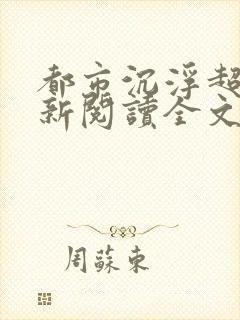 都市沉浮超
新閱讀全文
周蘇東